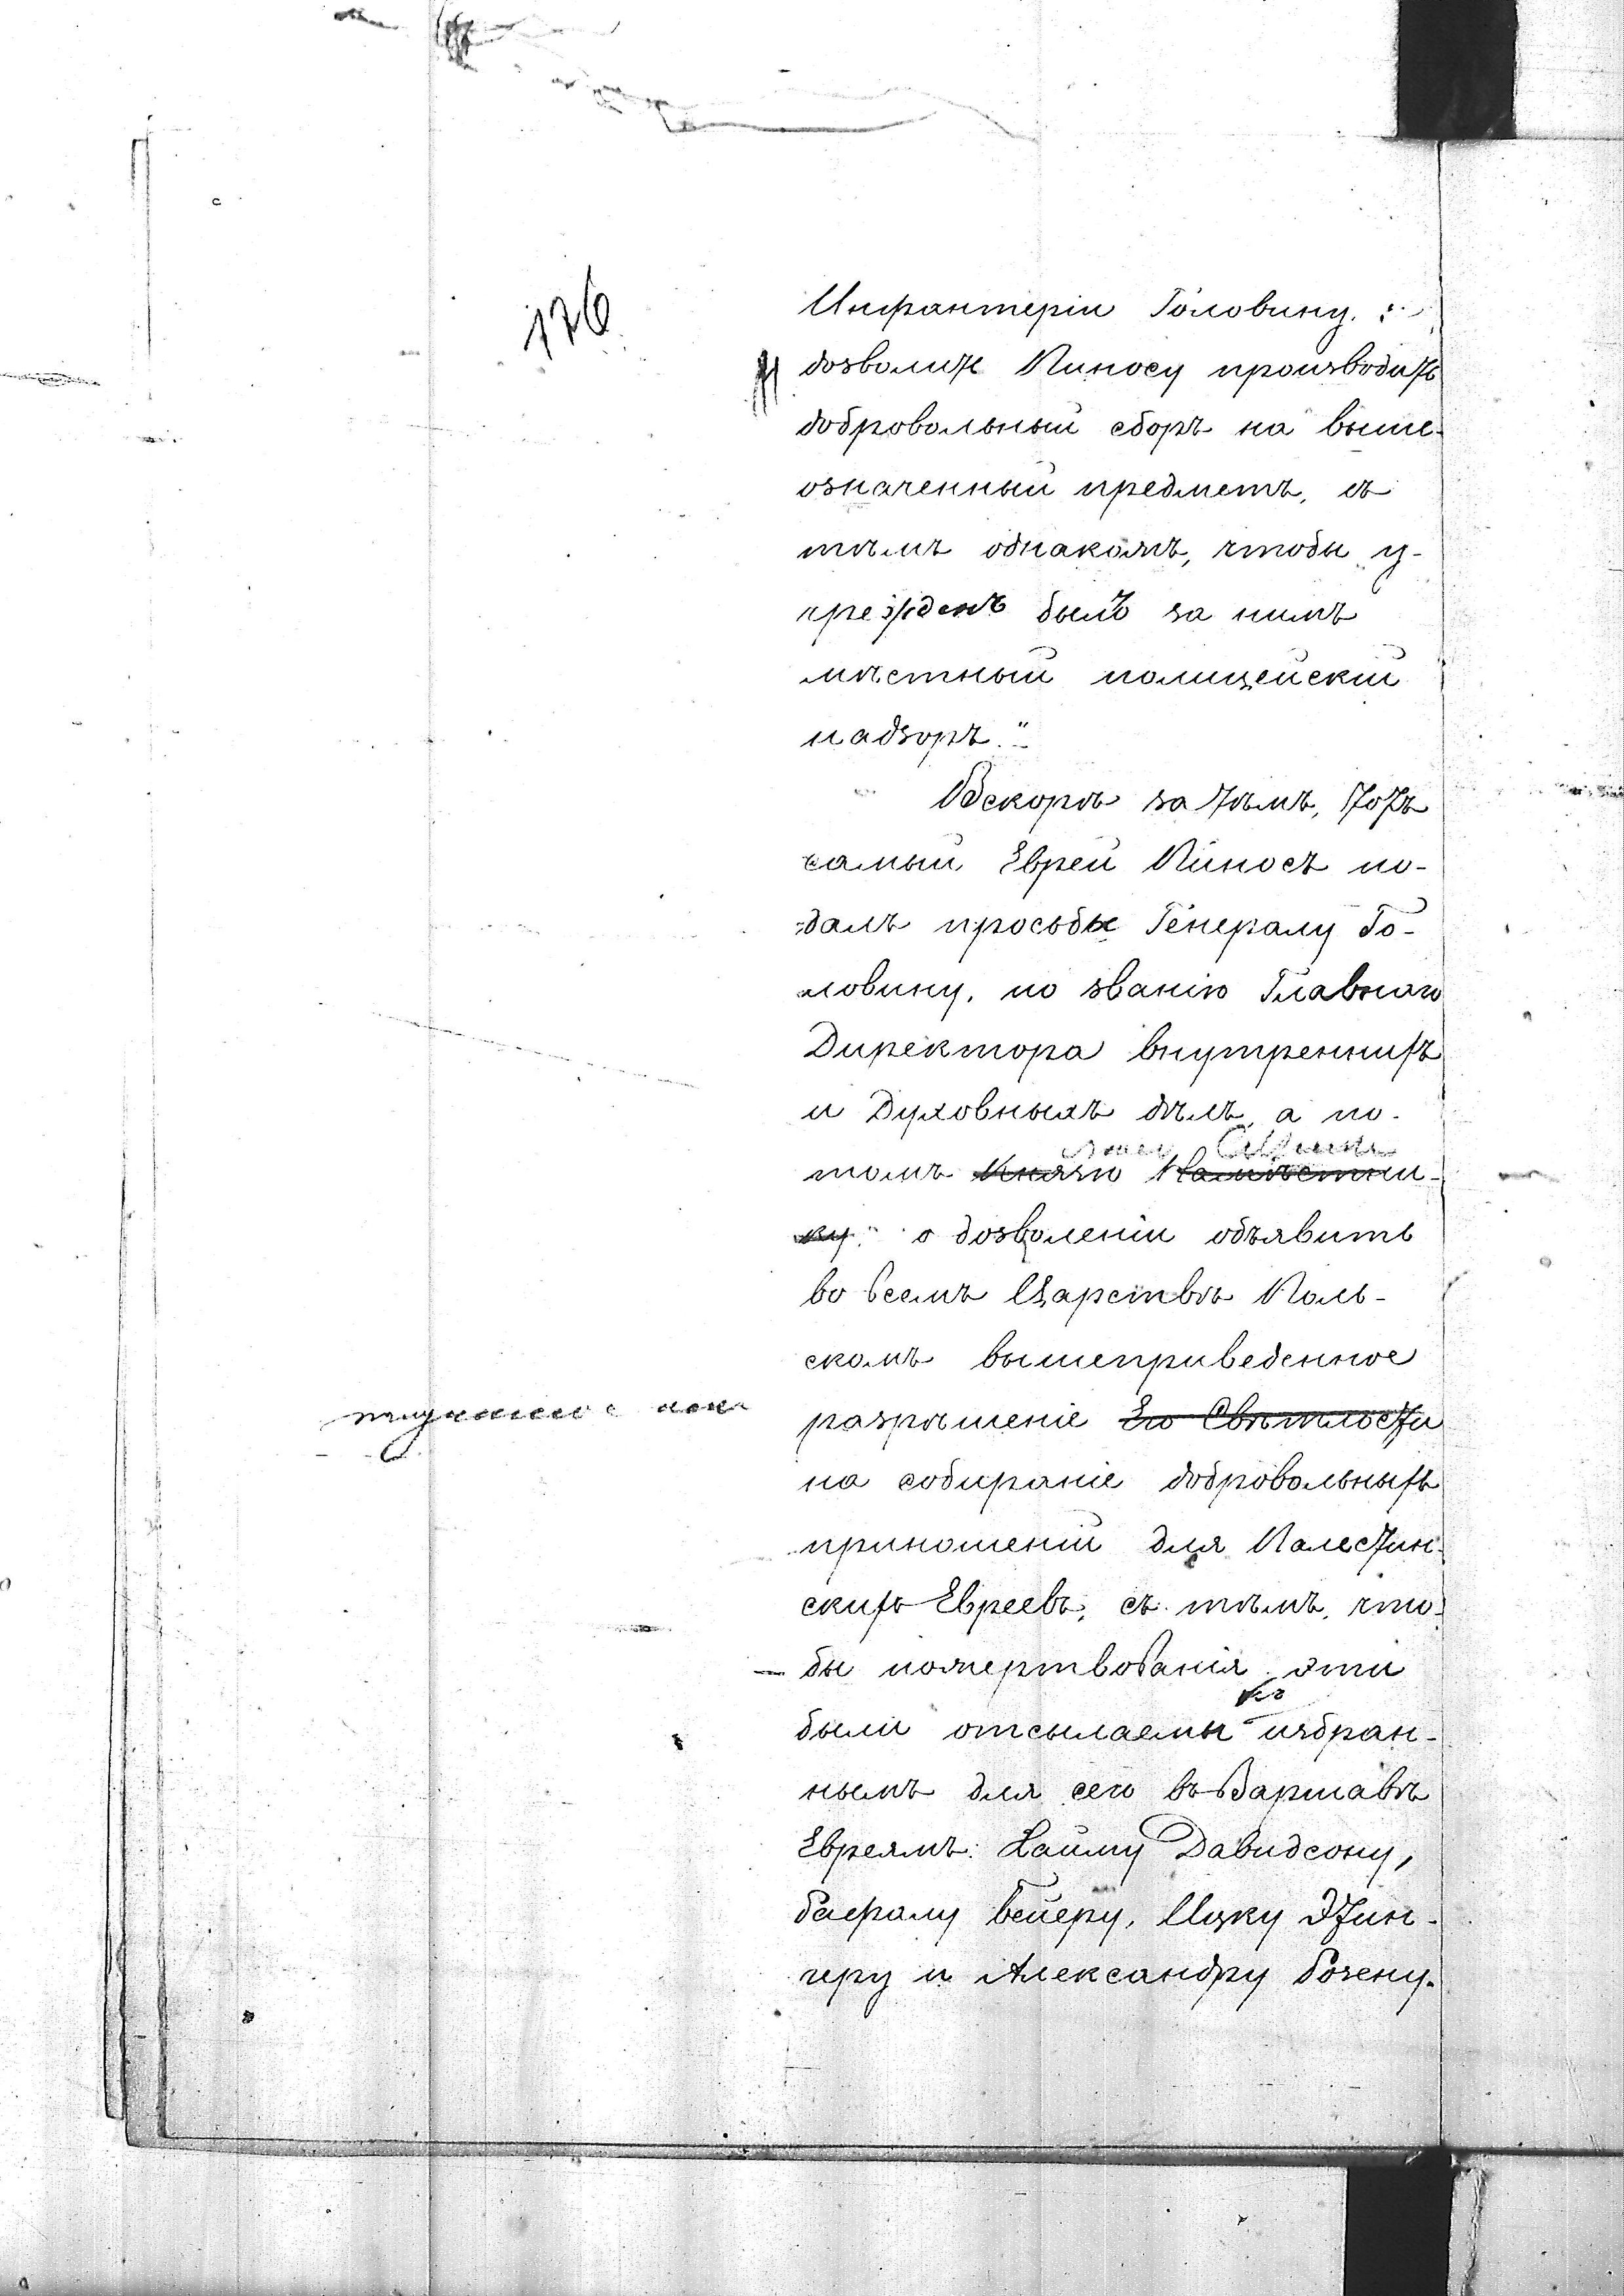 176
Инфантеріи Головину.
дозволить Пиносу производить
добровольный сборъ на выше-
означенный предметъ, съ
тѣмъ однакожъ, чтобы у-
чрежденъ былъ за нимъ
мѣстный полицейскій
надзоръ."
Вскорѣ за тѣмъ, тотъ
самый Еврей Пиносъ по-
далъ просьбы Генералу Го-
ловину, по званію Главнаго
Директора внутреннихъ
и Духовныхъ дѣлъ, а по-
томъ Князю Намѣстни-
ку о дозволеніи объявить
во всемъ Царствѣ Поль-
скомъ вышеприведенное
разрѣшеніе Его Свѣтлости
на собираніе добровольныхъ
приношеній для Палестин-
скихъ Евреевъ, съ тѣмъ, что-
бы пожертвованія эти
были отсылаемы къ избран-
нымъ для сего въ Варшавѣ
Евреямъ: Хаиму Давидсону,
Рафалу Вейеру, Ицку Этин-
геру и Александру Розену.